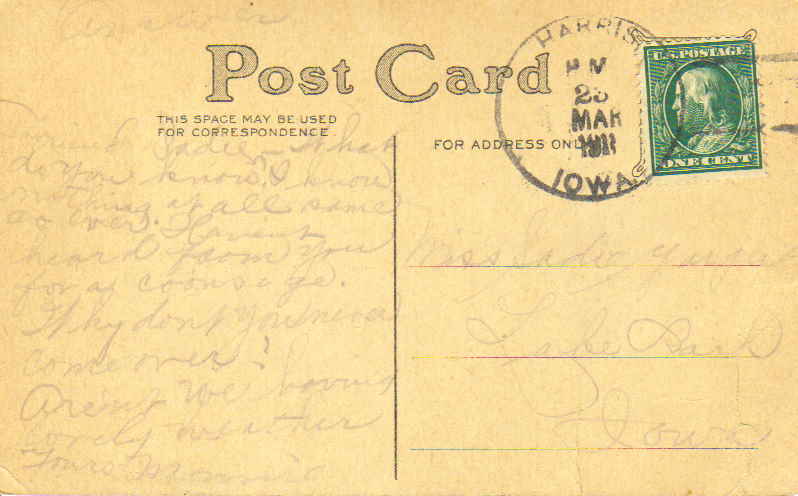 Answer
Post Card
THIS SPACE MAY BE USED
FOR CORRESPONDENCE
FOR ADDRESS ONLY
HARRIS
PM
23
MAR
1911
IOWA
U.S. POSTAGE
ONE CENT
Friend Sadie - What
do you know? I know
nothing at all same
as ever. Havent
heard from you
for a coons age.
Why dont you never
come over?
Arent we having
lovely weather
Yours
Miss Sadie
Lake Park
Iowa